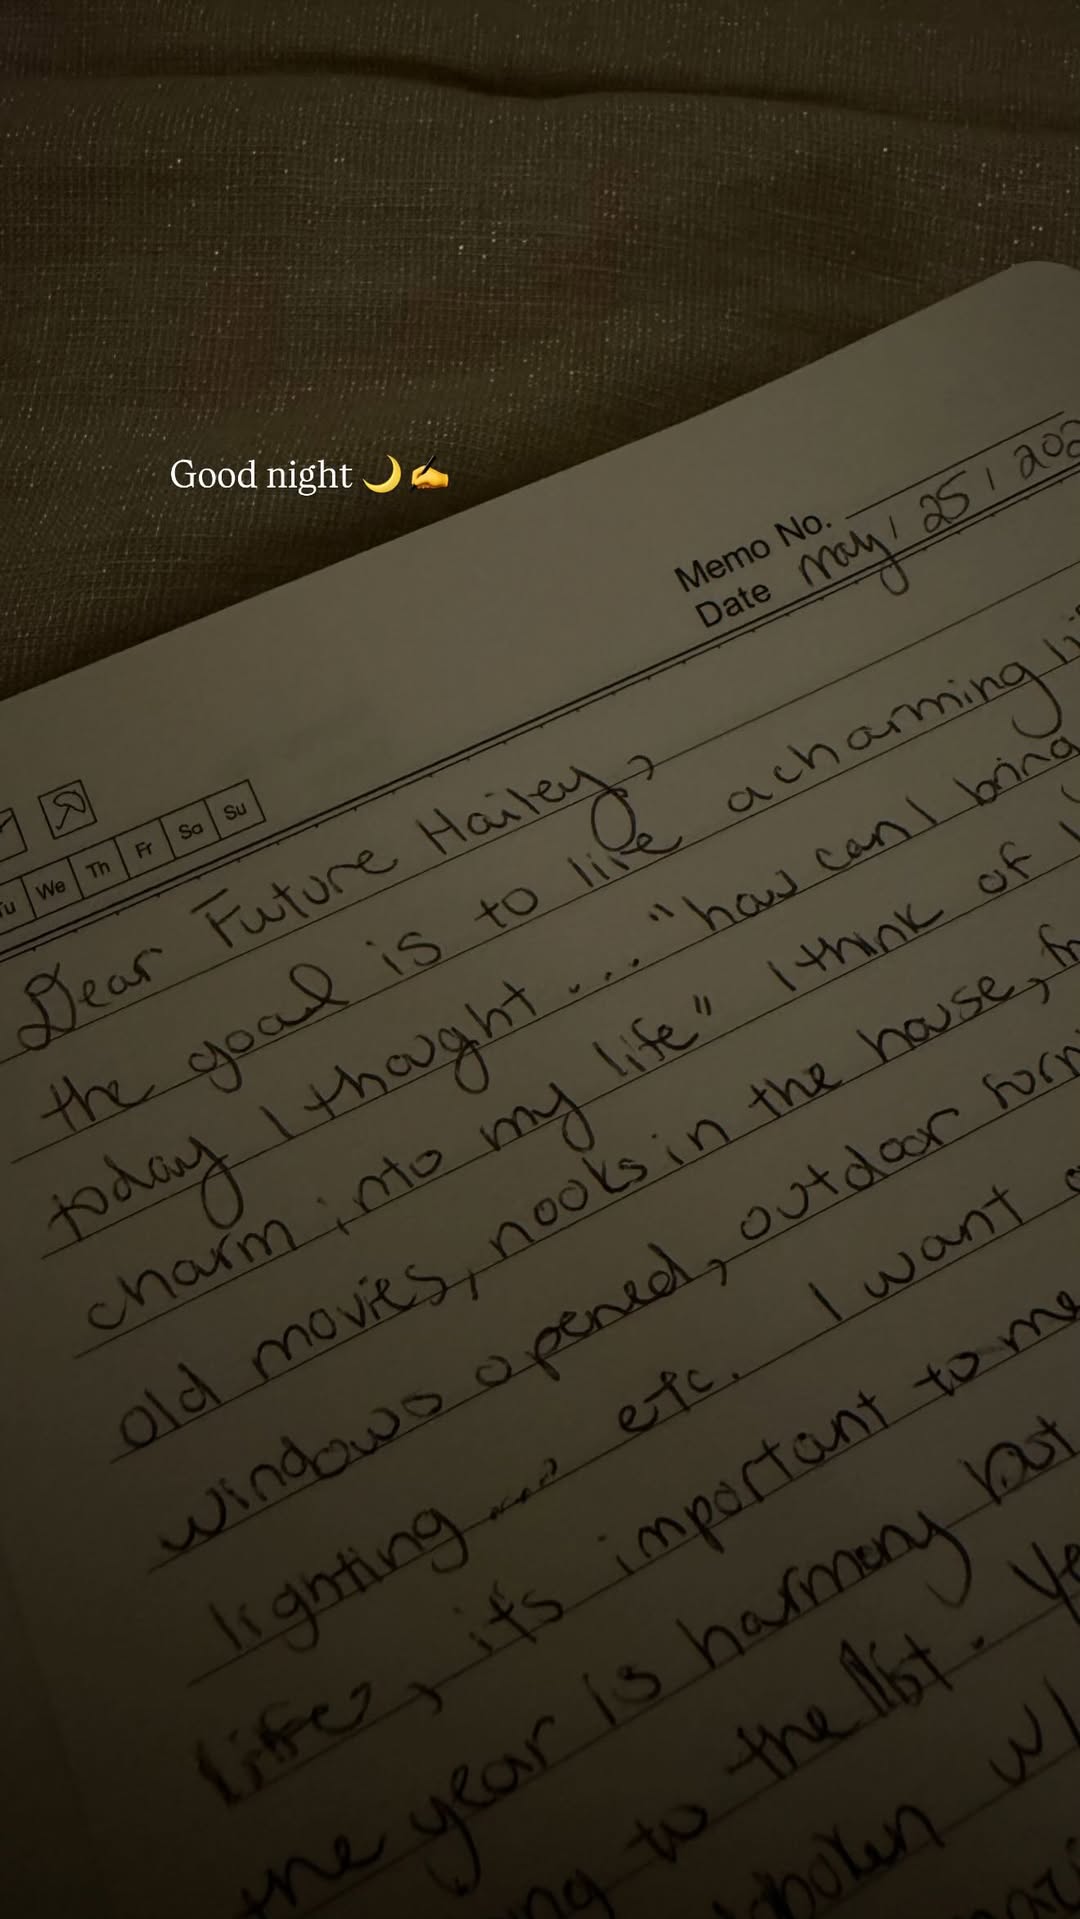 Good night 🌙✍️
Memo No.
Date may, 25, 202
Tu We Th Fr Sa Su
Dear Future Hailey,
the goal is to live a charming li
today I thought... "how can I bring
charm into my life" I think of
old movies, nooks in the house, fr
windows opened, outdoor furn
lighting.... etc. I want
life, its important to me
the year is harmony but
ng to the list. Ye
w/